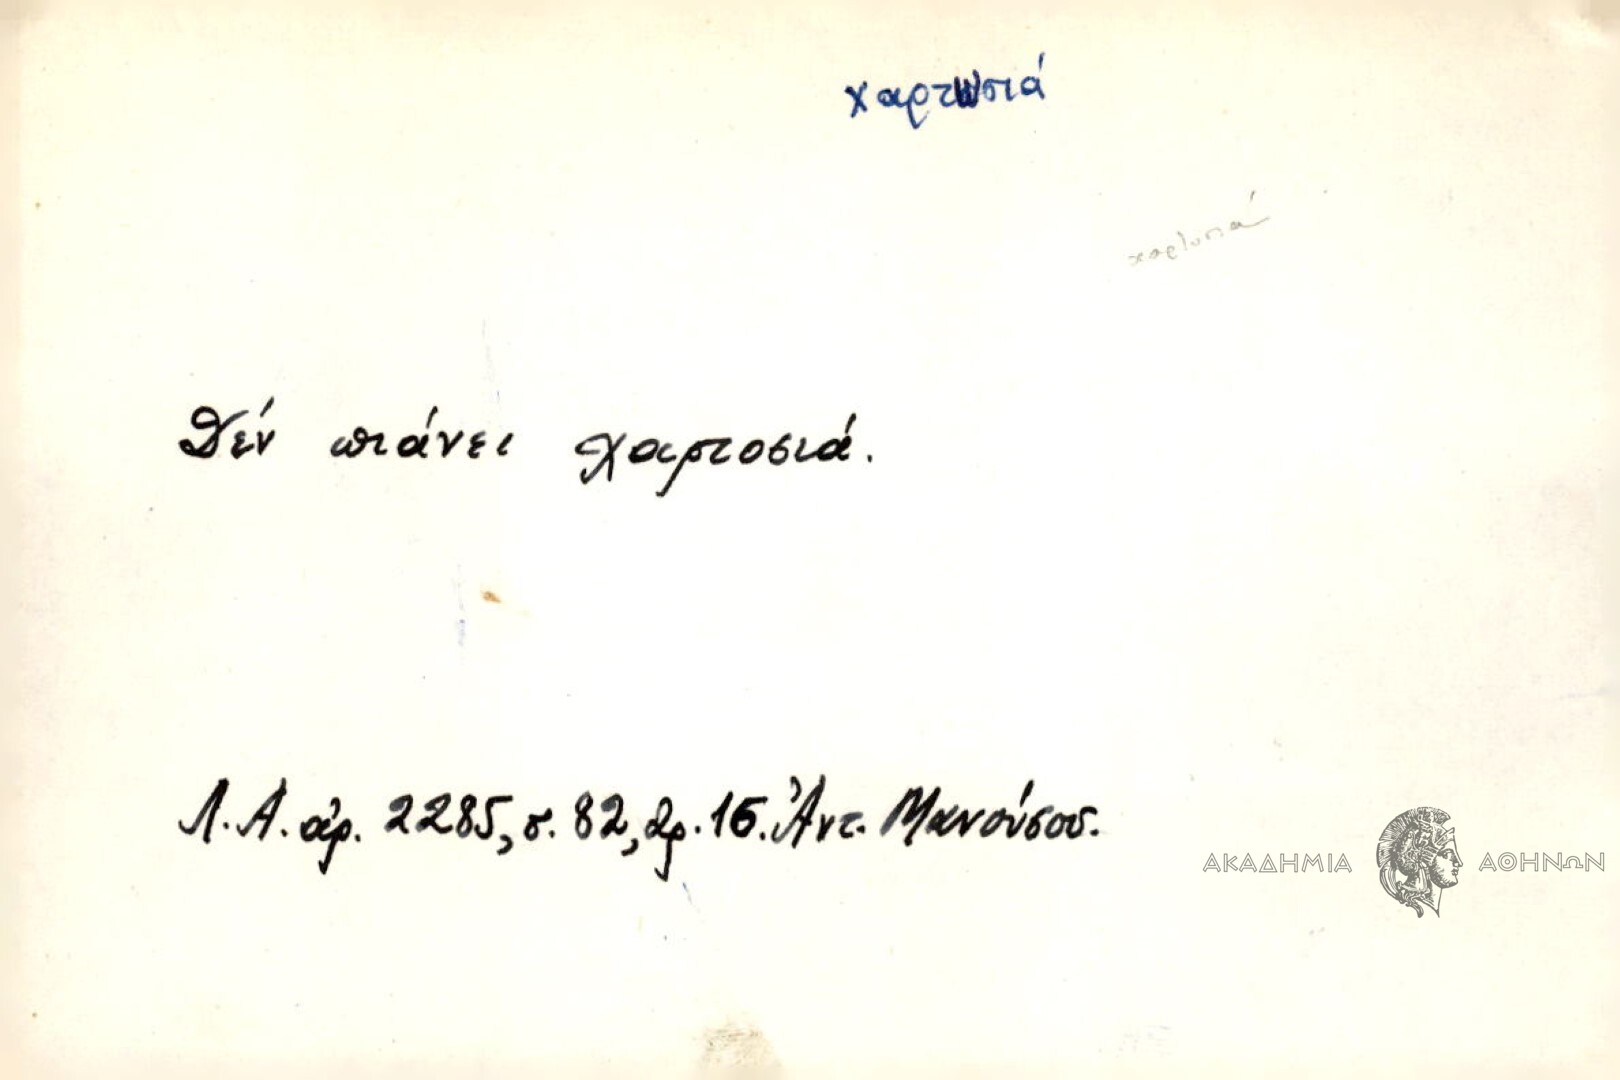 χαρτωσιά
χαρτωσιά
Δέν πιάνει χαρτοσιά.
Λ.Α. ἀρ. 2285, σ. 82, ἀρ. 16. Ἀντ. Μανούσου.
ΑΚΑΔΗΜΙΑ ΑΘΗΝΩΝ